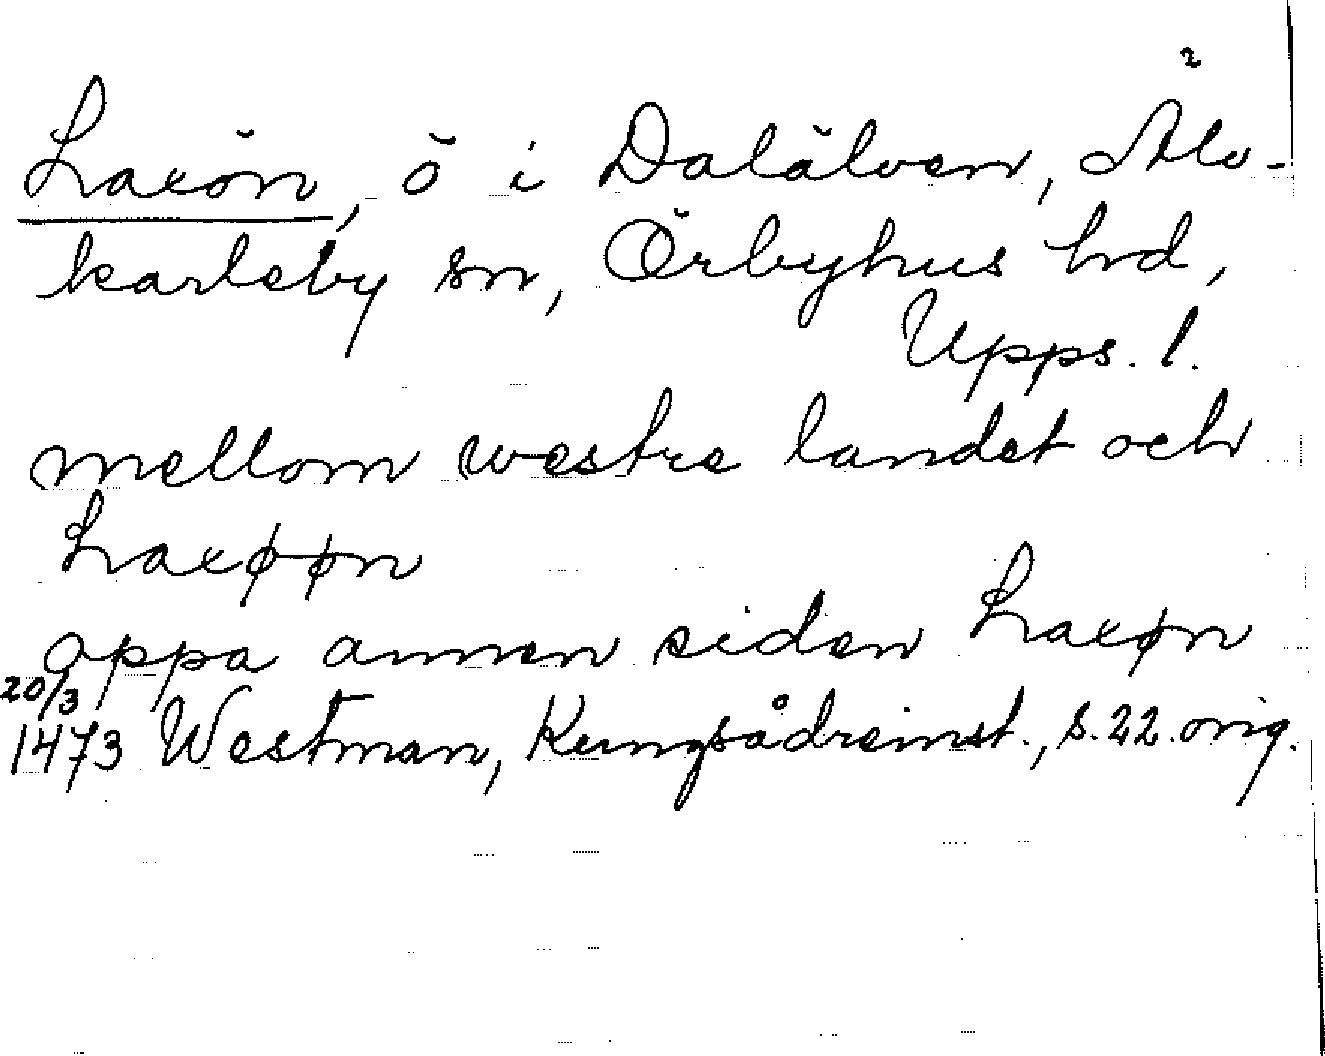 Laxön, ö i Dalälven, Älv-
karleby sn, Örbyhus hd,
Upps. l.
mellom westre landet och
Laxøøn
oppa annen siden Laxøn
20/3
1473 Westman, Kungsådreinst., s. 22. orig.